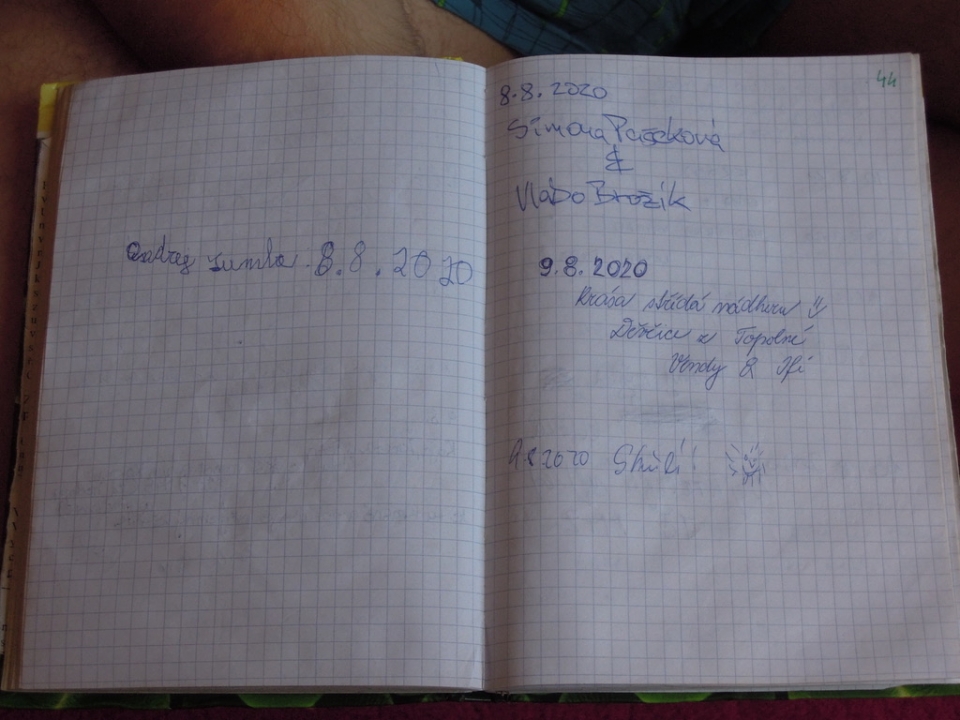 Ondrej 8.8.2020
44
8.8.2020
Simona Pacíková
&
Vlado Brozik
9.8.2020
Krása střídá nádheru
Děvčice z Topolné
Vendy &
9.8.2020